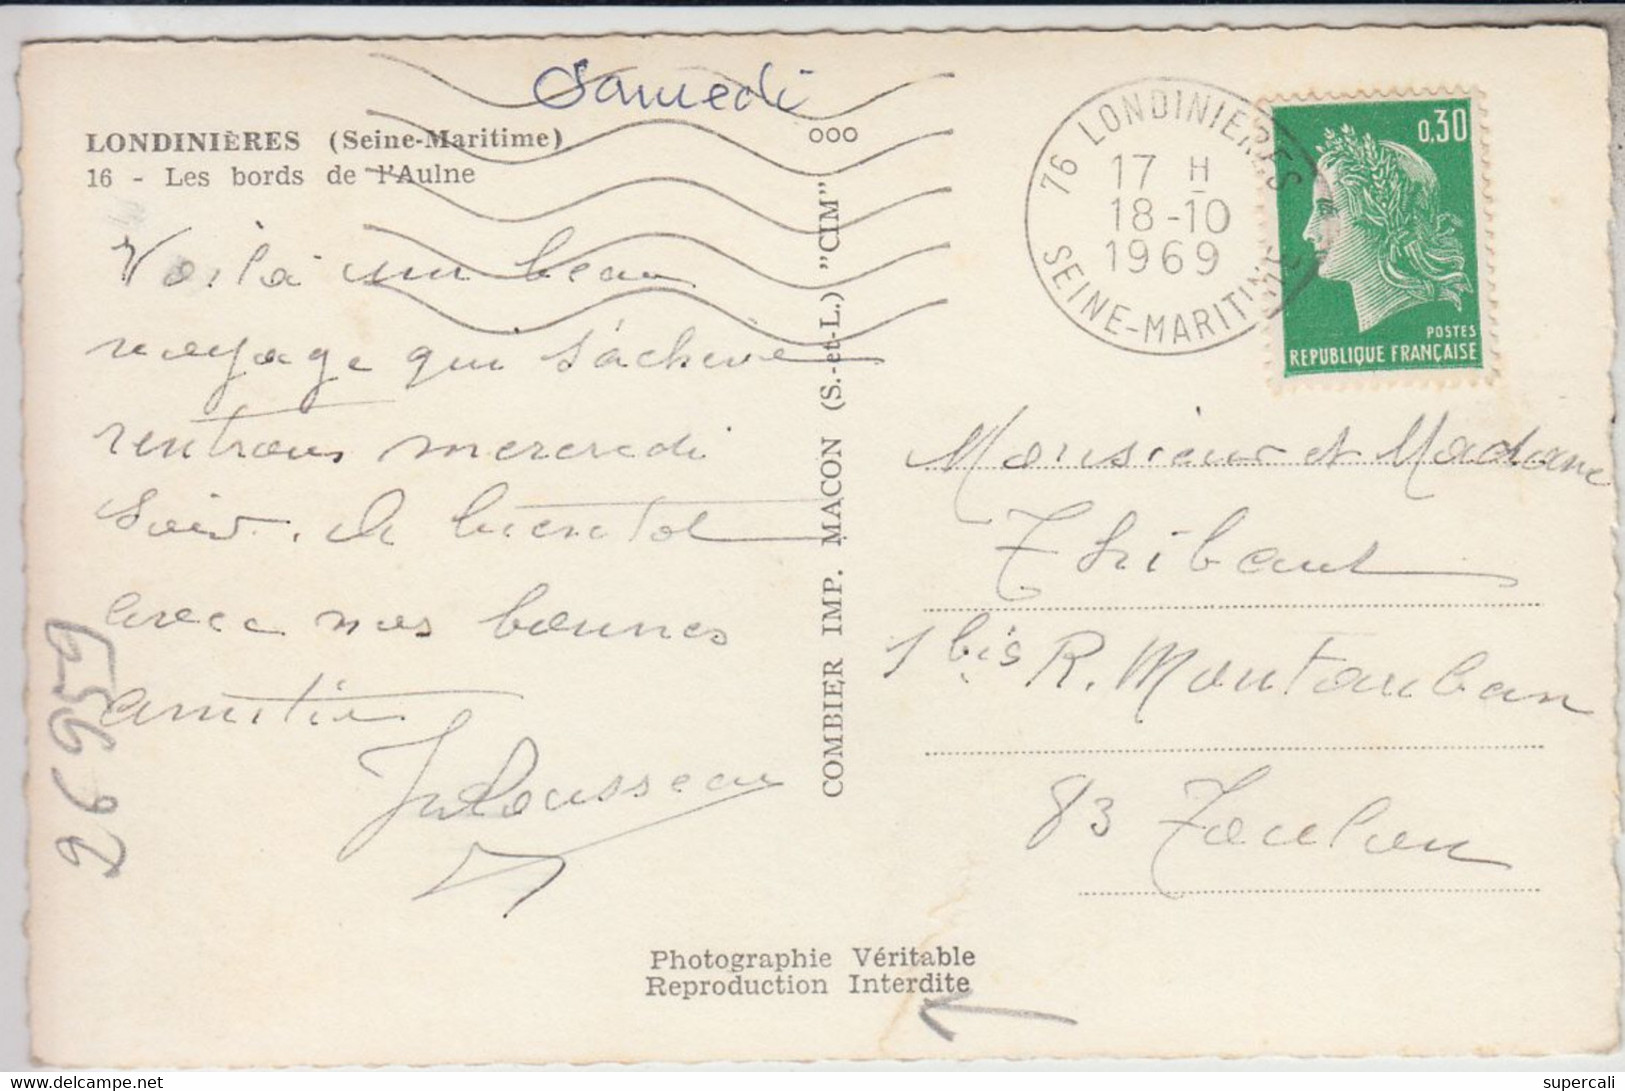 Samedi
LONDINIÈRES (Seine-Maritime)
16 - Les bords de l'Aulne
ooo
Voilà un beau
voyage qui s'achève
rentrons mercredi
soir. A bientot
avec nos bonnes
amitiés
Rousseau
26959
COMBIER IMP. MACON (S.-et-L.) "CIM"
76 LONDINIERES
17 H
18-10
1969
SEINE-MARITIME
0,30
POSTES
REPUBLIQUE FRANÇAISE
Monsieur et Madame
Thibaut
1 bis R. Montauban
83 Toulon
Photographie Véritable
Reproduction Interdite
Delcampe.net
supercali